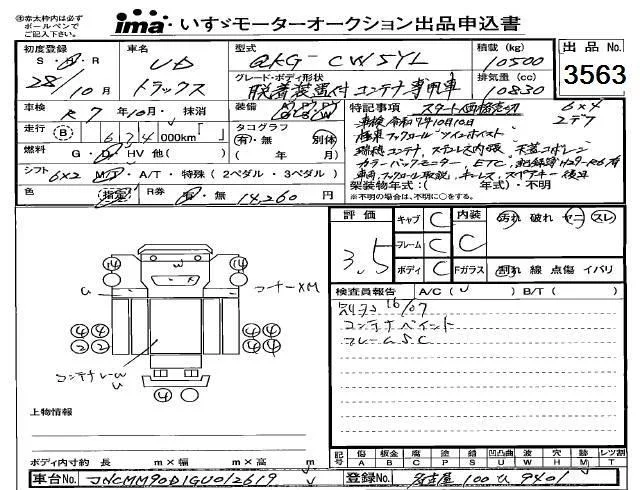 ㊟赤太枠内は必ず
ボールペンで
ご記入下さい。
ima いすゞモーターオークション出品申込書
初度登録 S・H・R 28年 10月
車名 UD トラックス
型式 QKG-CW5YL
グレード・ボディ形状 脱着装置付コンテナ専用車
積載(kg) 10500
排気量(cc) 10830
出品No. 3563
車検 R7年10月 抹消
装備 A/C P/S P/W
走行 B 634 000km「 」
タコグラフ 有・無 別体 ( 年 月)
燃料 G・D・HV 他( )
シフト 6×2 M/T・A/T・特殊(2ペダル・3ペダル)
色 指定 R券 有・無 14,260円
特記事項 スタート価格売切 6×4
車検 令和7年10月10日 2デフ
極東 フックロール ツインホイスト
コンテナ、ステンレス内張
カラーバックモニター、ETC、
取説、キーレス、スペアキー 後日
架装物年式:( 年式)・不明
※不明の場合は、不明に〇をする。
評価 3.5
キャブ C 内装 C
フレーム C
ボディ C Fガラス
汚れ 破れ ヤニ スレ
割れ 線 点傷 イバリ
検査員報告 A/C( ) B/T( )
16/07
コンテナペイント
フレームSC
コーナーXM
U
W
コンテナ
④ ④ ④ ④
② ② ② ②
⑭ ⑭
④
上物情報
ボディ内寸約 長 m×幅 m×高 m
記号 傷A 板金B 腐C 塗P 錆S 凹凸曲U 波W 穴H 跡M レツ割T
車台No. JNCMM90D1GU012619
登録No. 名古屋 100 ひ 9401